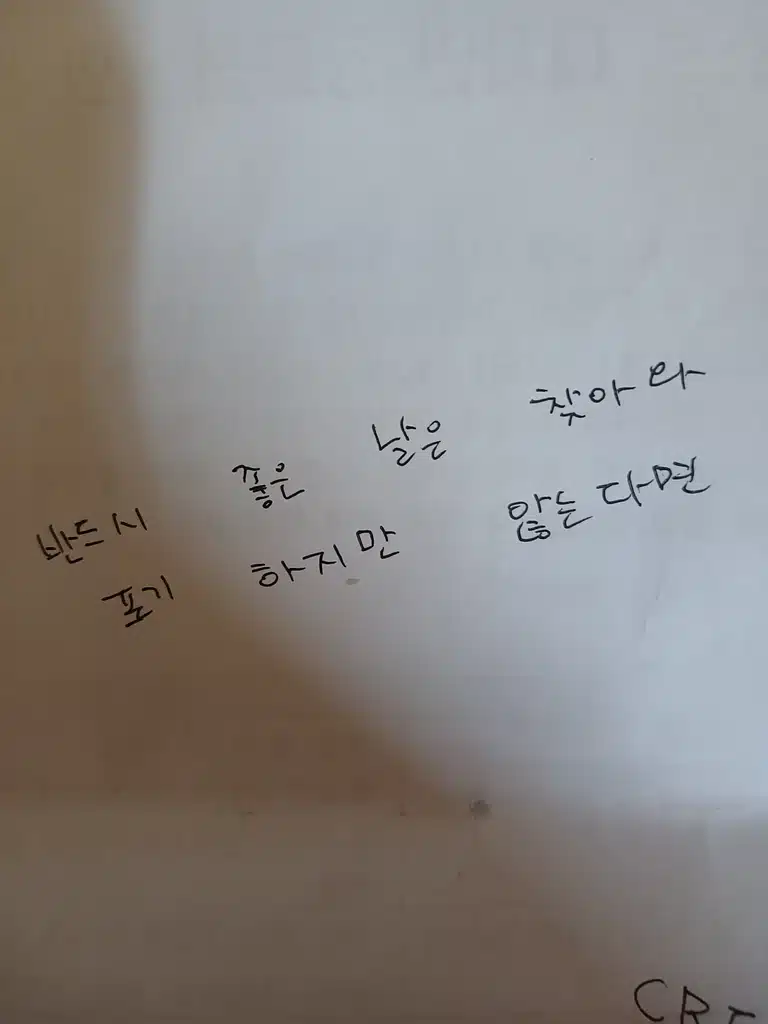 반드시 좋은 날은 찾아와
포기 하지만 않는다면